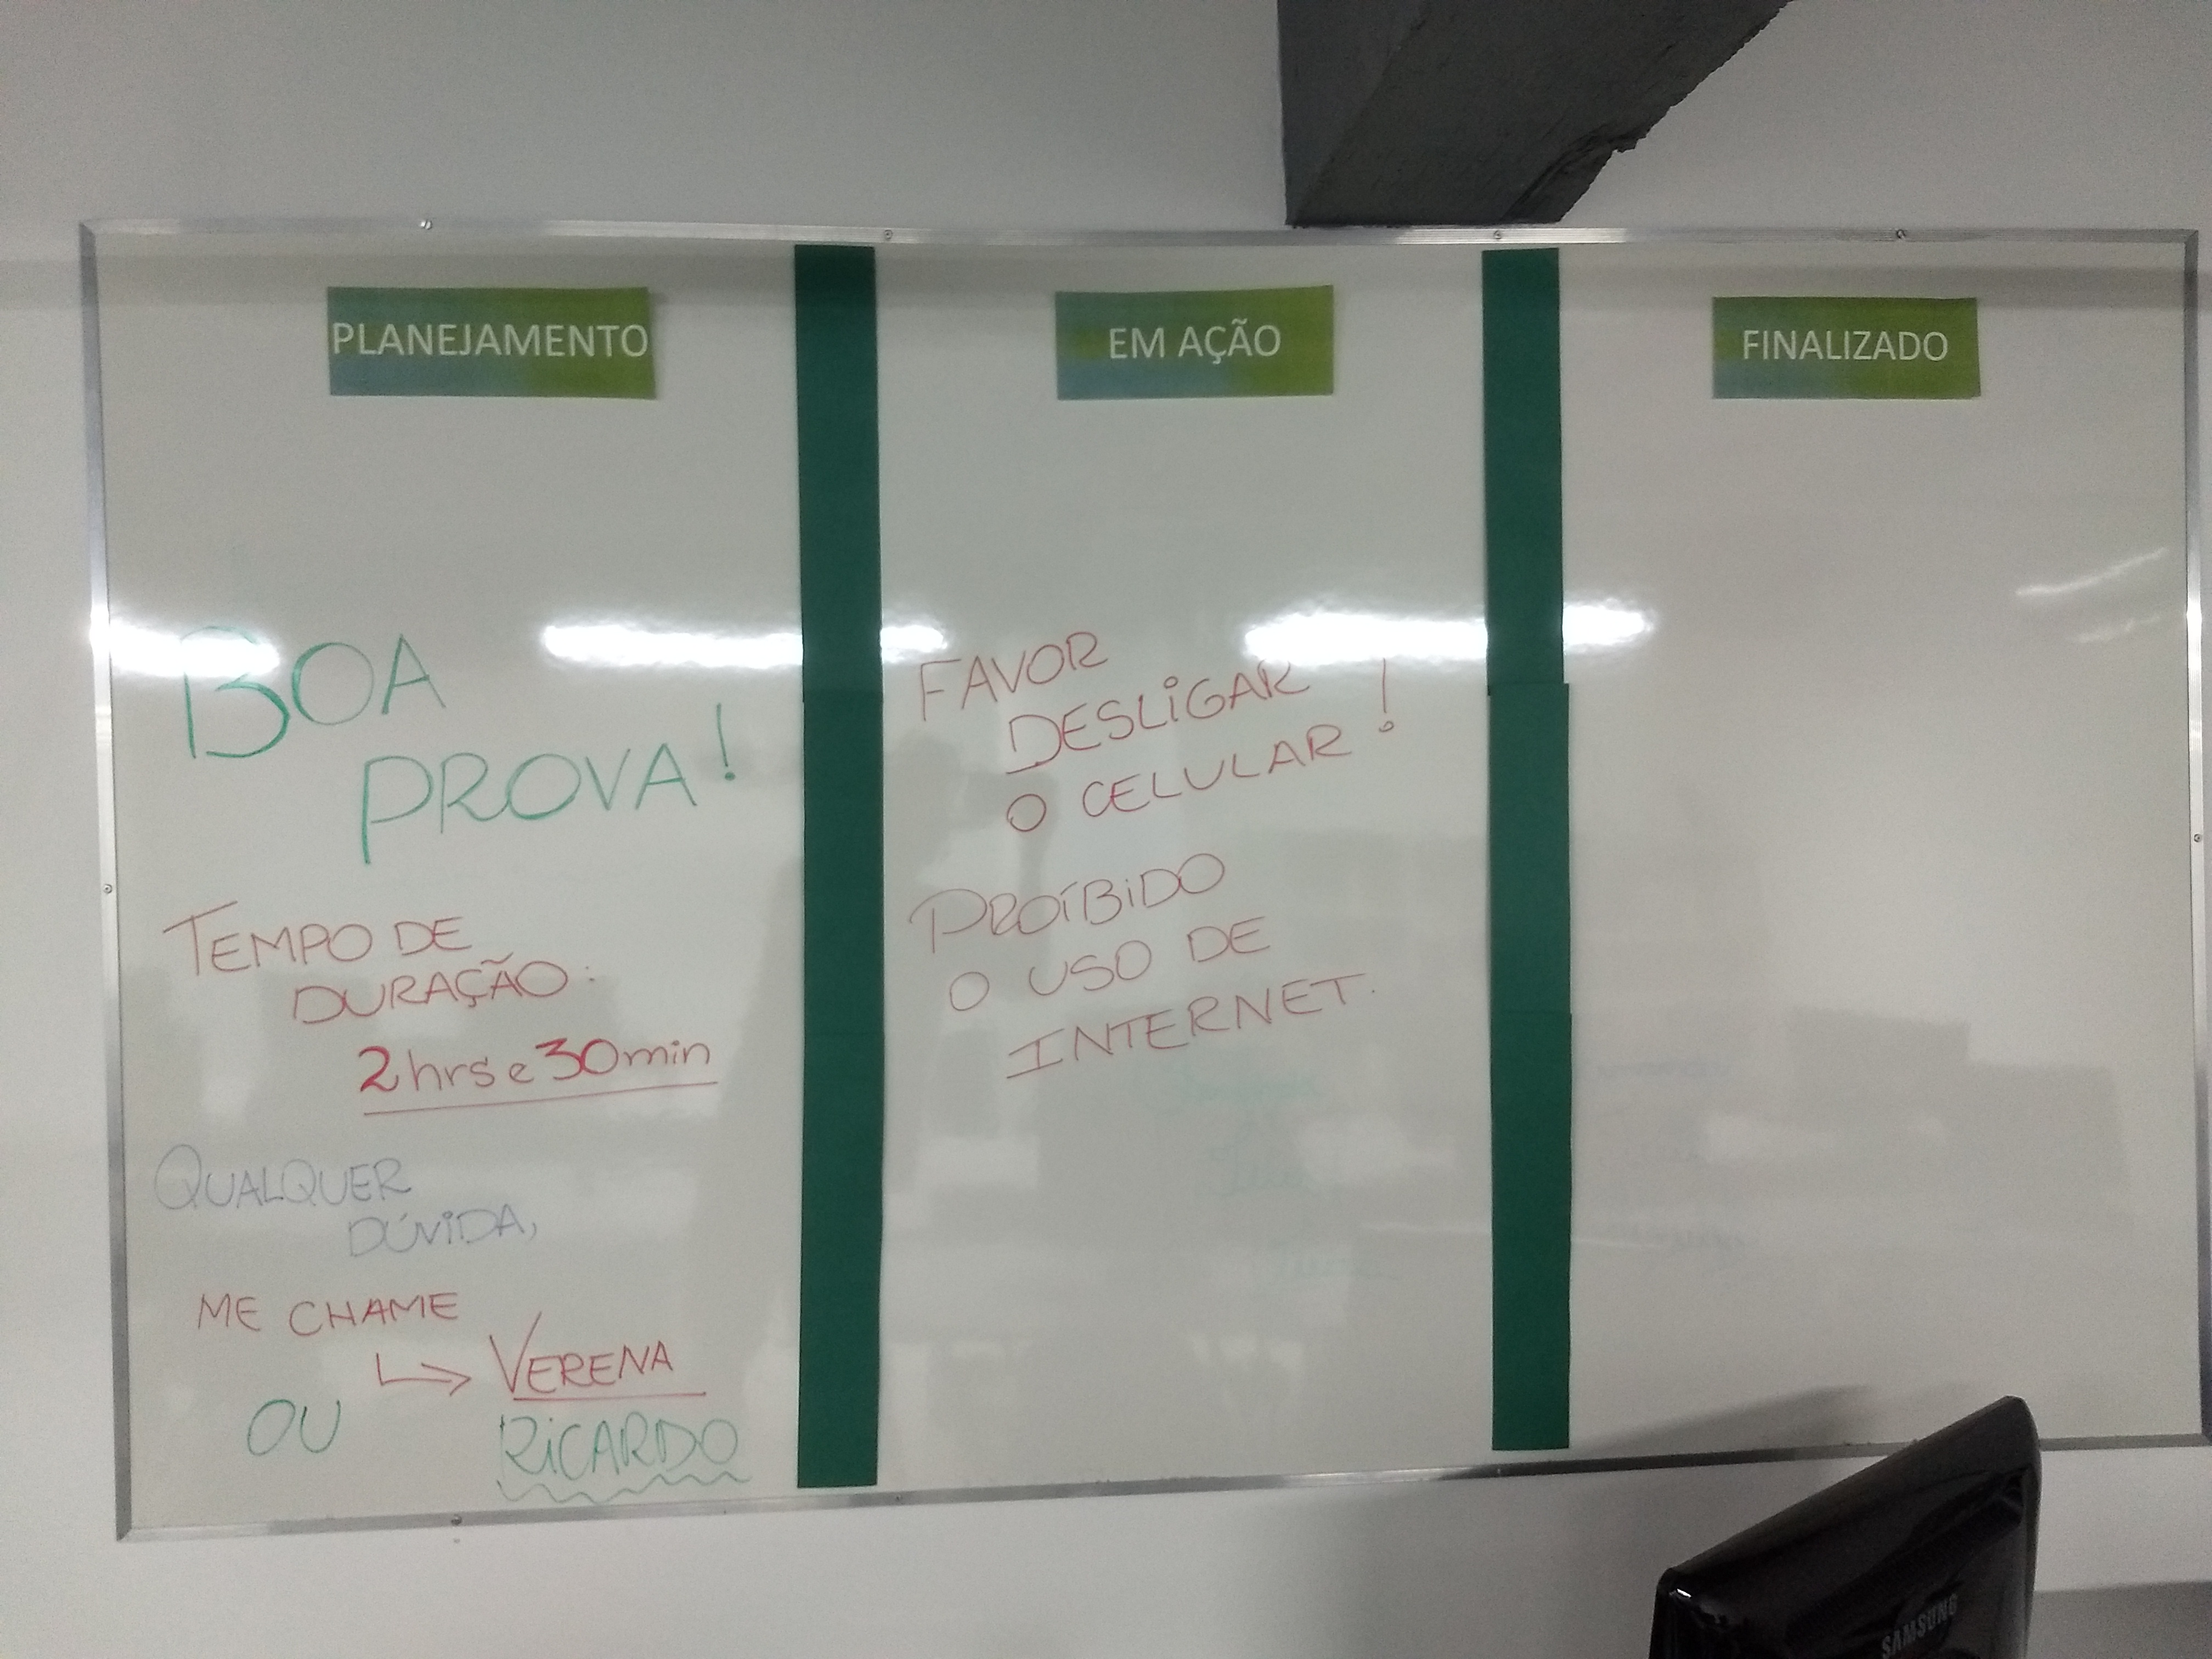 PLANEJAMENTO
BOA
PROVA!
TEMPO DE
DURAÇÃO:
2hrs e 30min
QUALQUER
DÚVIDA,
ME CHAME
↳ VERENA
OU RICARDO
EM AÇÃO
FAVOR
DESLIGAR
O CELULAR!
PROÍBIDO
O USO DE
INTERNET.
FINALIZADO
SAMSUNG